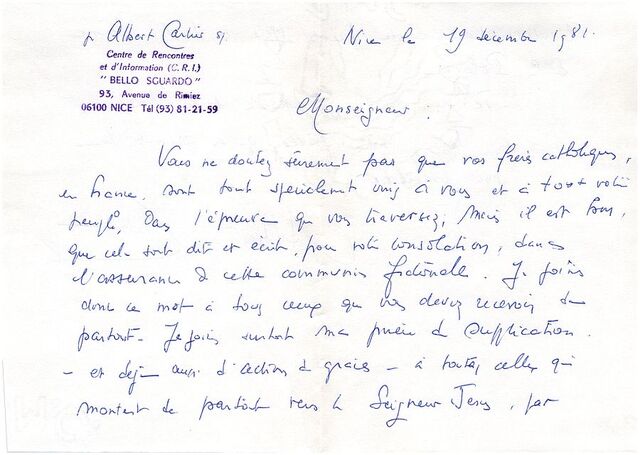 P Albert Carlier sj
Nice le 19 décembre 1981.
Centre de Rencontres
et d'Information (C. R. I.)
" BELLO SGUARDO "
93, Avenue de Rimiez
06100 NICE Tél (93) 81-21-59
Monseigneur.
Vous ne doutez sûrement pas que vos frères catholiques,
en France, sont tout spécialement unis à vous et à tout votre
peuple, dans l'épreuve que vous traversez, mais il est bon,
que cela soit dit et écrit, pour votre consolation, dans
l'assurance de cette communion fraternelle. Je joins
donc ce mot à tous ceux que vous devez recevoir de
partout. Je joins surtout ma prière de supplication.
- et déjà aussi d'action de grâces - à toutes celles qui
montent de partout vers le Seigneur Jésus, par